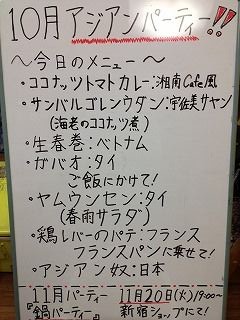 10月アジアンパーティー!!
～今日のメニュー～
・ココナッツトマトカレー:湘南Cafe風
・サンバルゴレンウダン:宇佐美サヤン
(海老のココナツ煮)
・生春巻:ベトナム
・ガパオ:タイ
ご飯にかけて!
・ヤムウンセン:タイ
(春雨サラダ)
・鶏レバーのパテ:フランス
フランスパンに乗せて!
・アジアン奴:日本
11月パーティー 11月20日(火)19:00～
『鍋パーティー』 新宿ショップにて!